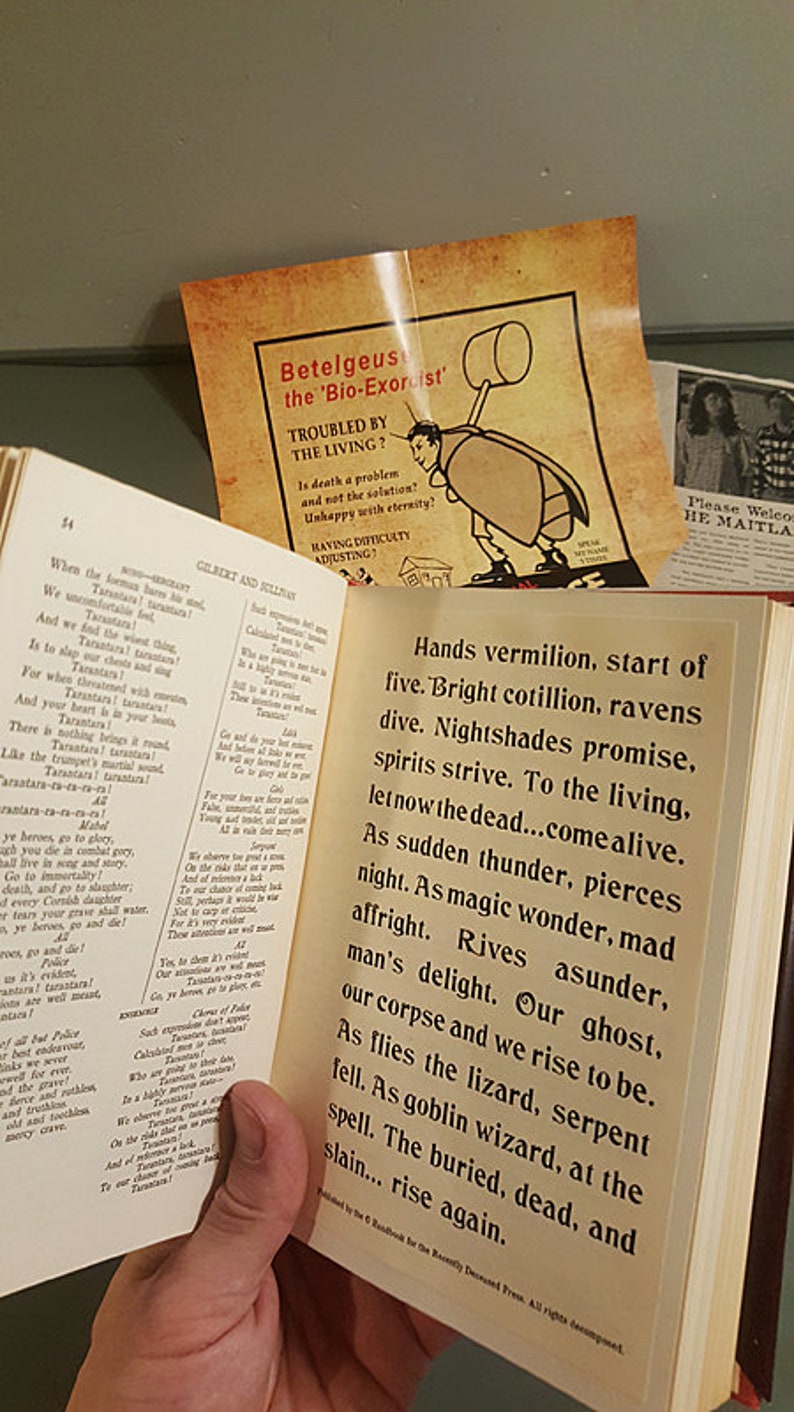 Betelgeuse
the 'Bio-Exorcist'
TROUBLED BY
THE LIVING?
Is death a problem
and not the solution?
Unhappy with eternity?
HAVING DIFFICULTY
ADJUSTING?
SPEAK
MY NAME
3 TIMES
Please Welco
HE MAITLA
54
GILBERT AND SULLIVAN
SONG—SERGEANT
When the foeman bares his steel,
Tarantara! tarantara!
We uncomfortable feel,
Tarantara!
And we find the wisest thing,
Tarantara! tarantara!
Is to slap our chests and sing
Tarantara!
For when threatened with emeutes,
Tarantara! tarantara!
And your heart is in your boots,
Tarantara!
There is nothing brings it round,
Tarantara! tarantara!
Like the trumpet's martial sound,
Tarantara! tarantara!
Tarantara-ra-ra-ra-ra!
All
rantara-ra-ra-ra-ra!
Mabel
ye heroes, go to glory,
ugh you die in combat gory,
hall live in song and story.
Go to immortality!
death, and go to slaughter;
d every Cornish daughter
r tears your grave shall water.
o, ye heroes, go and die!
All
roes, go and die!
Police
us it's evident,
tarantara!
ions are well meant,
ntara!
of all but Police
r best endeavour,
hinks we sever
ewell for ever.
nd the grave!
fierce and ruthless,
and truthless.
old and toothless,
mercy crave.
Such expressions don't appear,
Tarantara! tarantara!
Calculated men to cheer,
Tarantara!
Who are going to meet their fate
In a highly nervous state,
Tarantara!
Still to us it's evident
These intentions are well meant.
Tarantara!
Edith
Go and do your best endeavour,
And before all links we sever,
We will say farewell for ever.
Go to glory and the grave!
Girls
For your foes are fierce and ruthless,
False, unmerciful, and truthless.
Young and tender, old and toothless,
All in vain their mercy crave.
Sergeant
We observe too great a stress,
On the risks that on us press,
And of reference a lack
To our chance of coming back.
Still, perhaps it would be wise
Not to carp or criticise,
For it's very evident
These attentions are well meant.
All
Yes, to them it's evident
Our attentions are well meant.
Tarantara-ra-ra-ra-ra!
Go, ye heroes, go to glory, etc.
ENSEMBLE
Chorus of Police
Such expressions don't appear,
Tarantara, tarantara!
Calculated men to cheer,
Tarantara!
Who are going to their fate,
Tarantara, tarantara!
In a highly nervous state—
Tarantara!
We observe too great a
Tarantara, tarantara
On the risks that on us
Tarantara!
And of reference a lack,
Tarantara, tarantara!
To our chance of coming back
Tarantara!
Hands vermilion, start of
five. Bright cotillion, ravens
dive. Nightshades promise,
spirits strive. To the living,
let now the dead...come alive.
As sudden thunder, pierces
night. As magic wonder, mad
affright. Rives asunder,
man's delight. Our ghost,
our corpse and we rise to be.
As flies the lizard, serpent
fell. As goblin wizard, at the
spell. The buried, dead, and
slain... rise again.
Published by the © Handbook for the Recently Deceased Press. All rights decomposed.